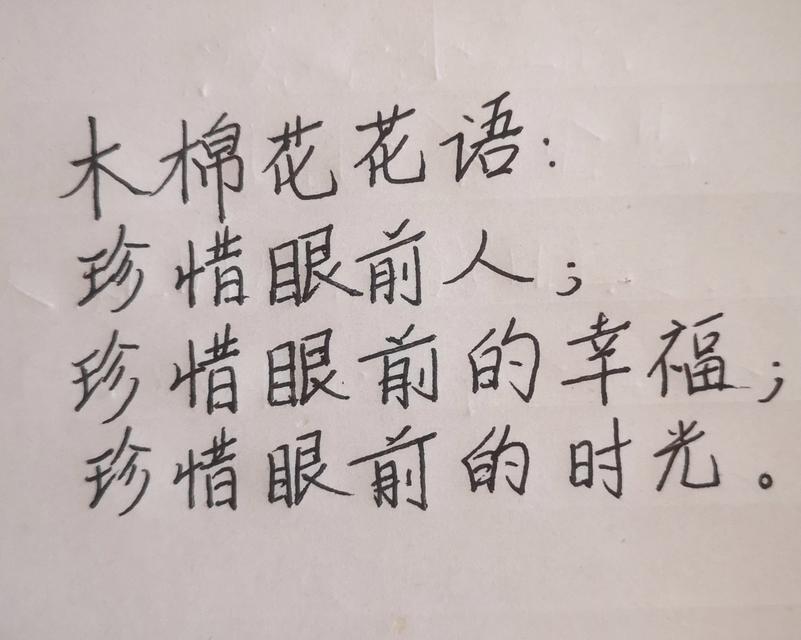 木棉花花语:
珍惜眼前人;
珍惜眼前的幸福;
珍惜眼前的时光。